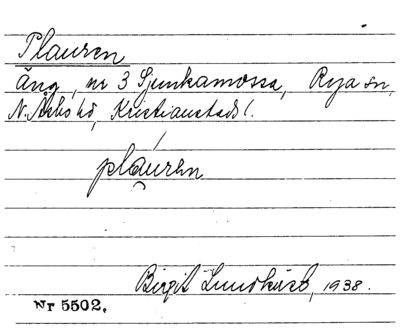 Plauren
Äng, nr 3 Ljunkamossa, Rya sn,
N. Åsbo hd, Kristianstads l.
plauren
Birgit Lundkvist, 1938.
Nr 5502.